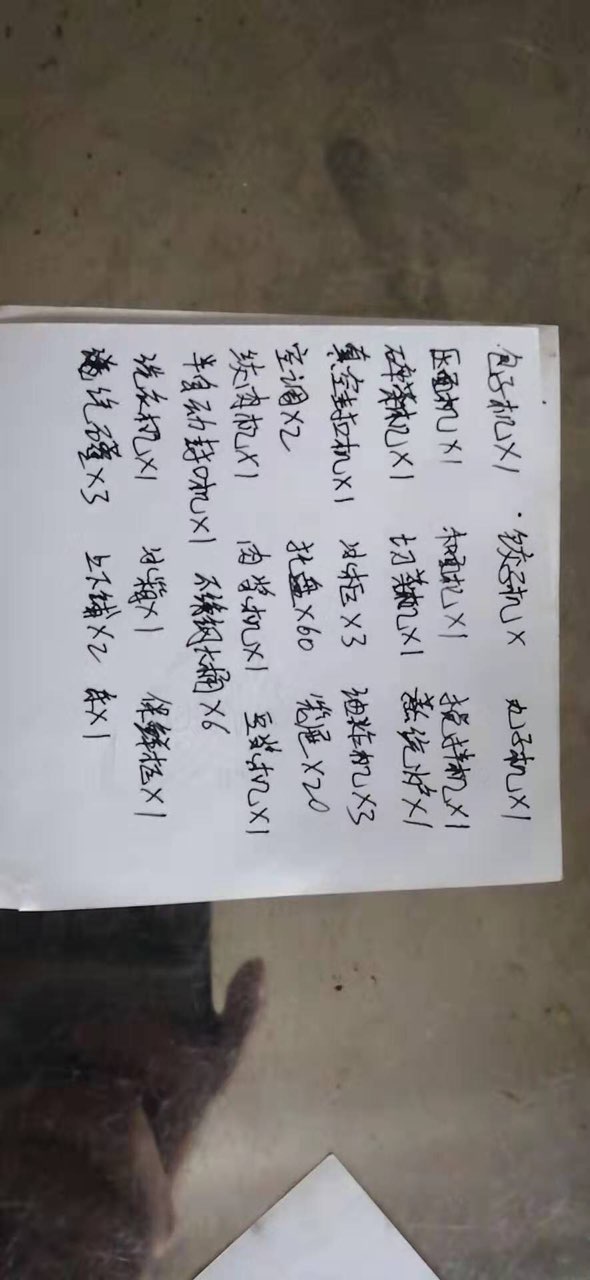 包子机×1 · 饺子机× 丸子机×1
压面机×1 和面机×1 搅拌机×1
碎菜机×1 切菜机×1 蒸汽炉×1
真空封拉机×1 冰柜×3 油炸机×3
空调×2 托盘×60 笼屉×20
绞肉机×1 肉浆机×1 豆浆机×1
半自动封口机×1 不锈钢大桶×6
洗衣机×1 冰箱×1 保鲜柜×1
×3 上下铺×2 ×1